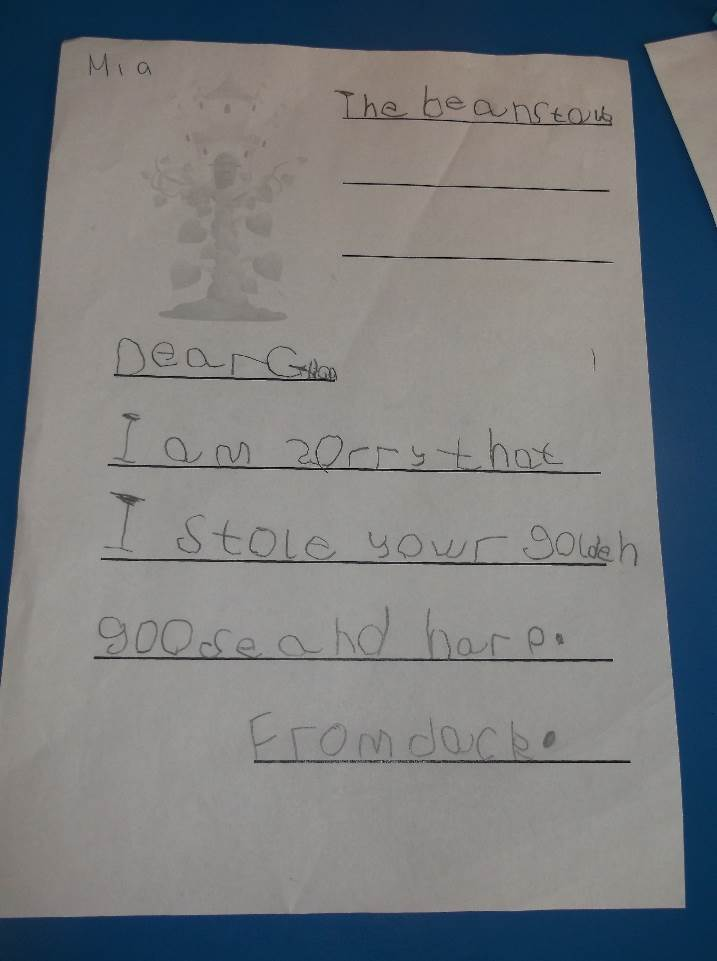 Mia
The beanstalk
Dear
I am sorry that
I stole yowr golden
goose and harp.
From Jack.